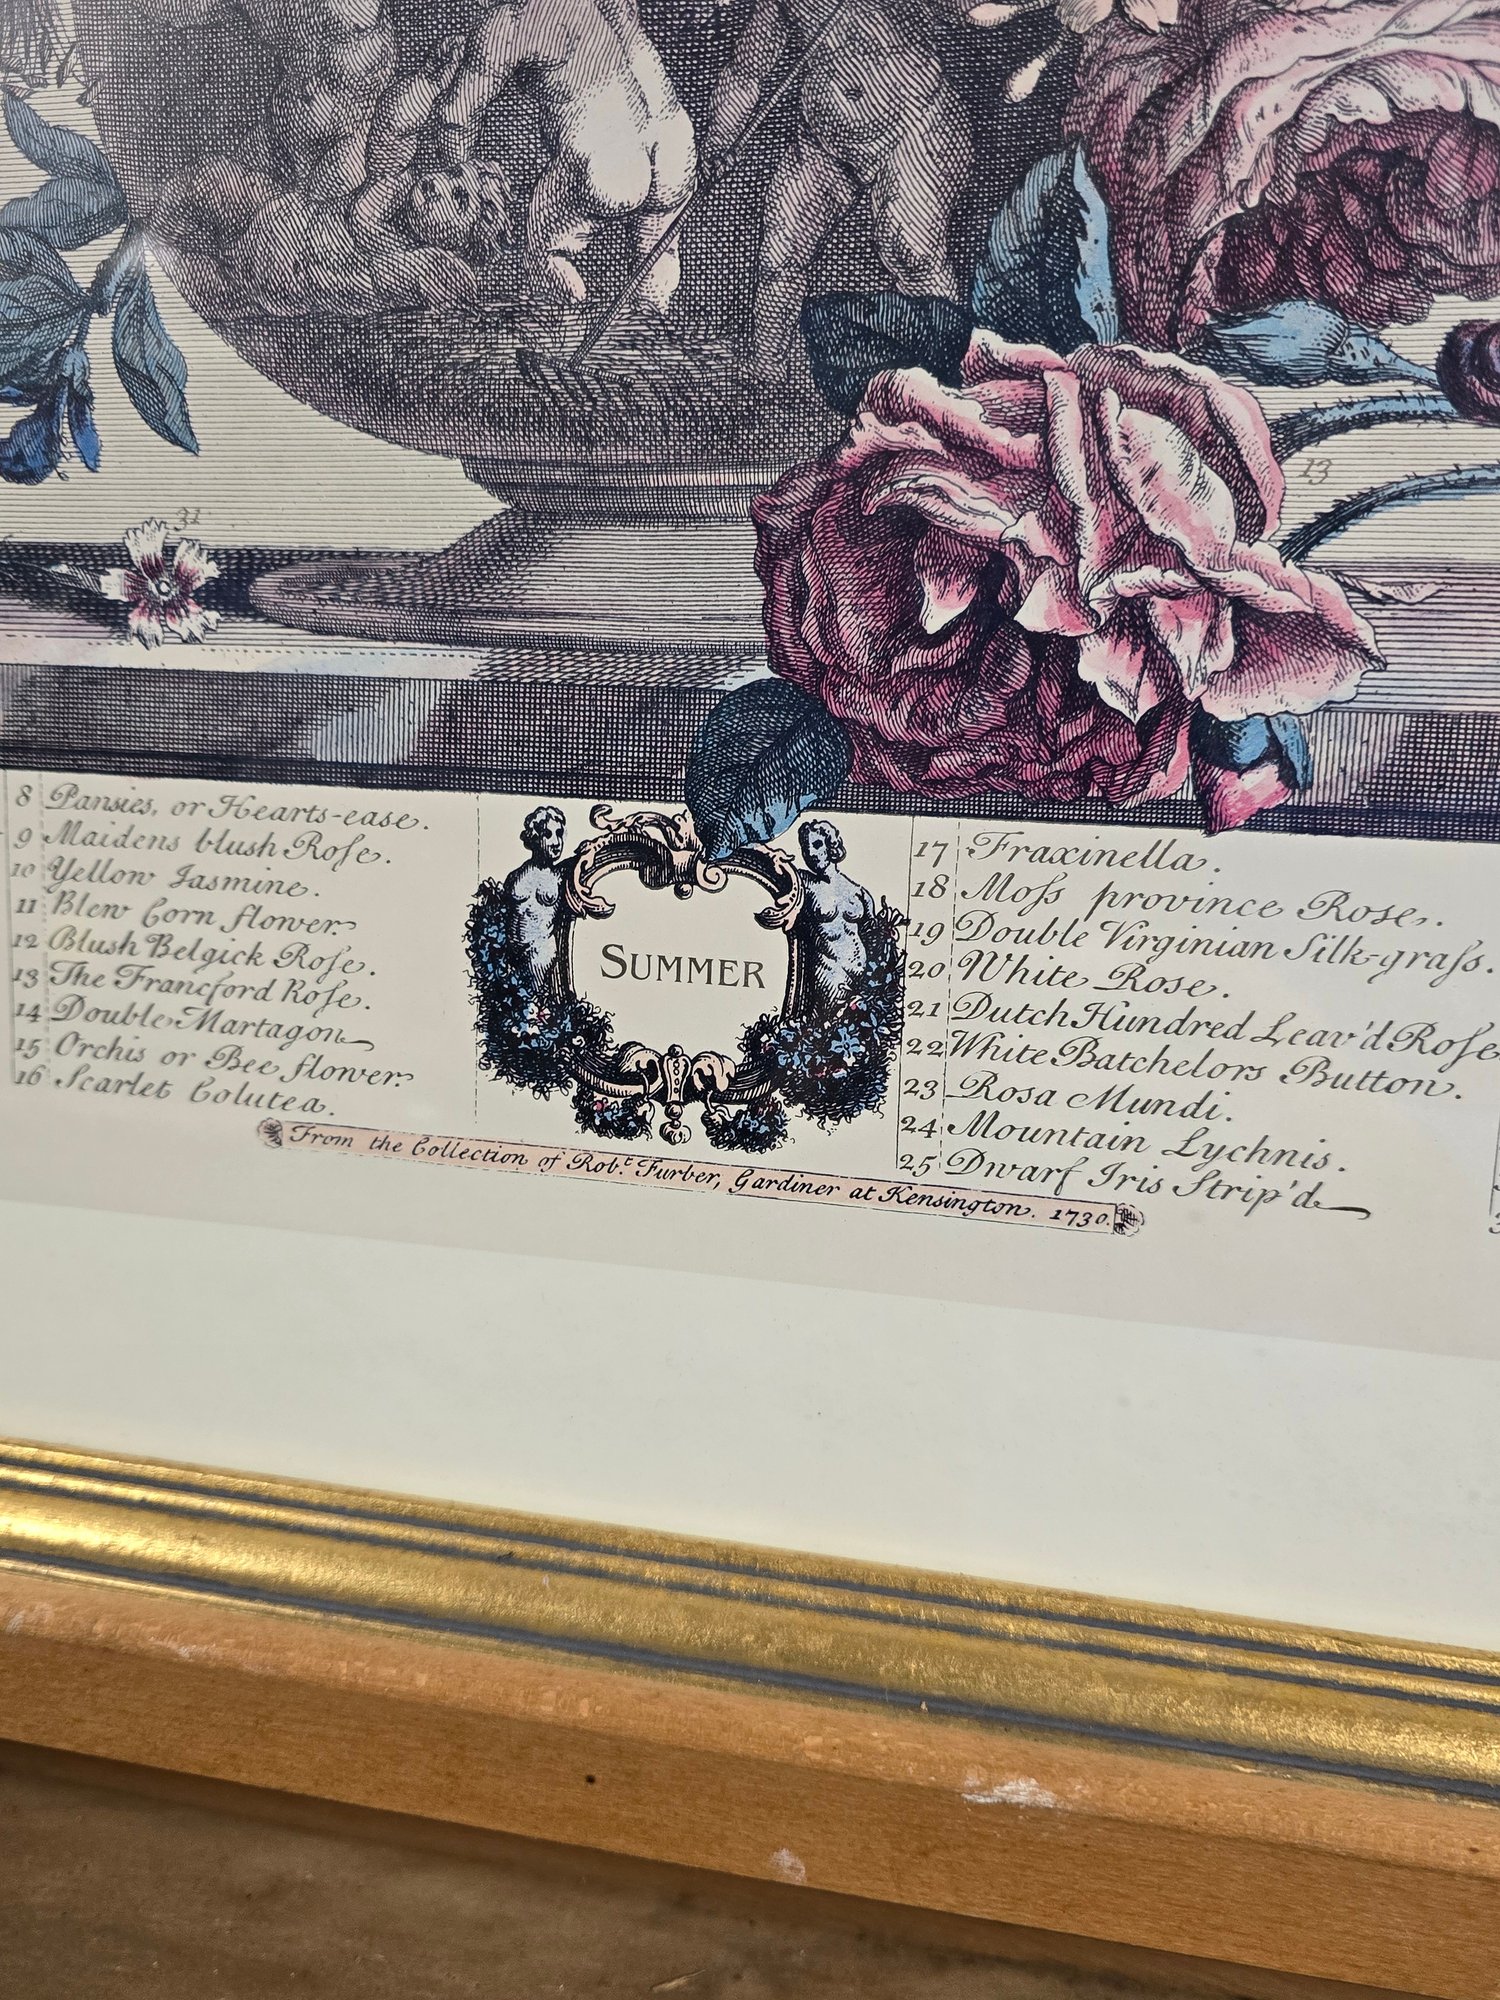 31
13
8 Pansies, or Hearts-ease.
9 Maidens blush Roſe.
10 Yellow Jasmine.
11 Blew Corn flower.
12 Blush Belgick Roſe.
13 The Francford Roſe.
14 Double Martagon
15 Orchis or Bee flower.
16 Scarlet Colutea.
SUMMER
17 Fraxinella.
18 Moſs province Rose.
19 Double Virginian Silk-graſs.
20 White Rose.
21 Dutch Hundred Leav'd Roſe
22 White Batchelors Button.
23 Rosa Mundi.
24 Mountain Lychnis.
25 Dwarf Iris Strip'd
From the Collection of Robt. Furber, Gardiner at Kensington. 1730.